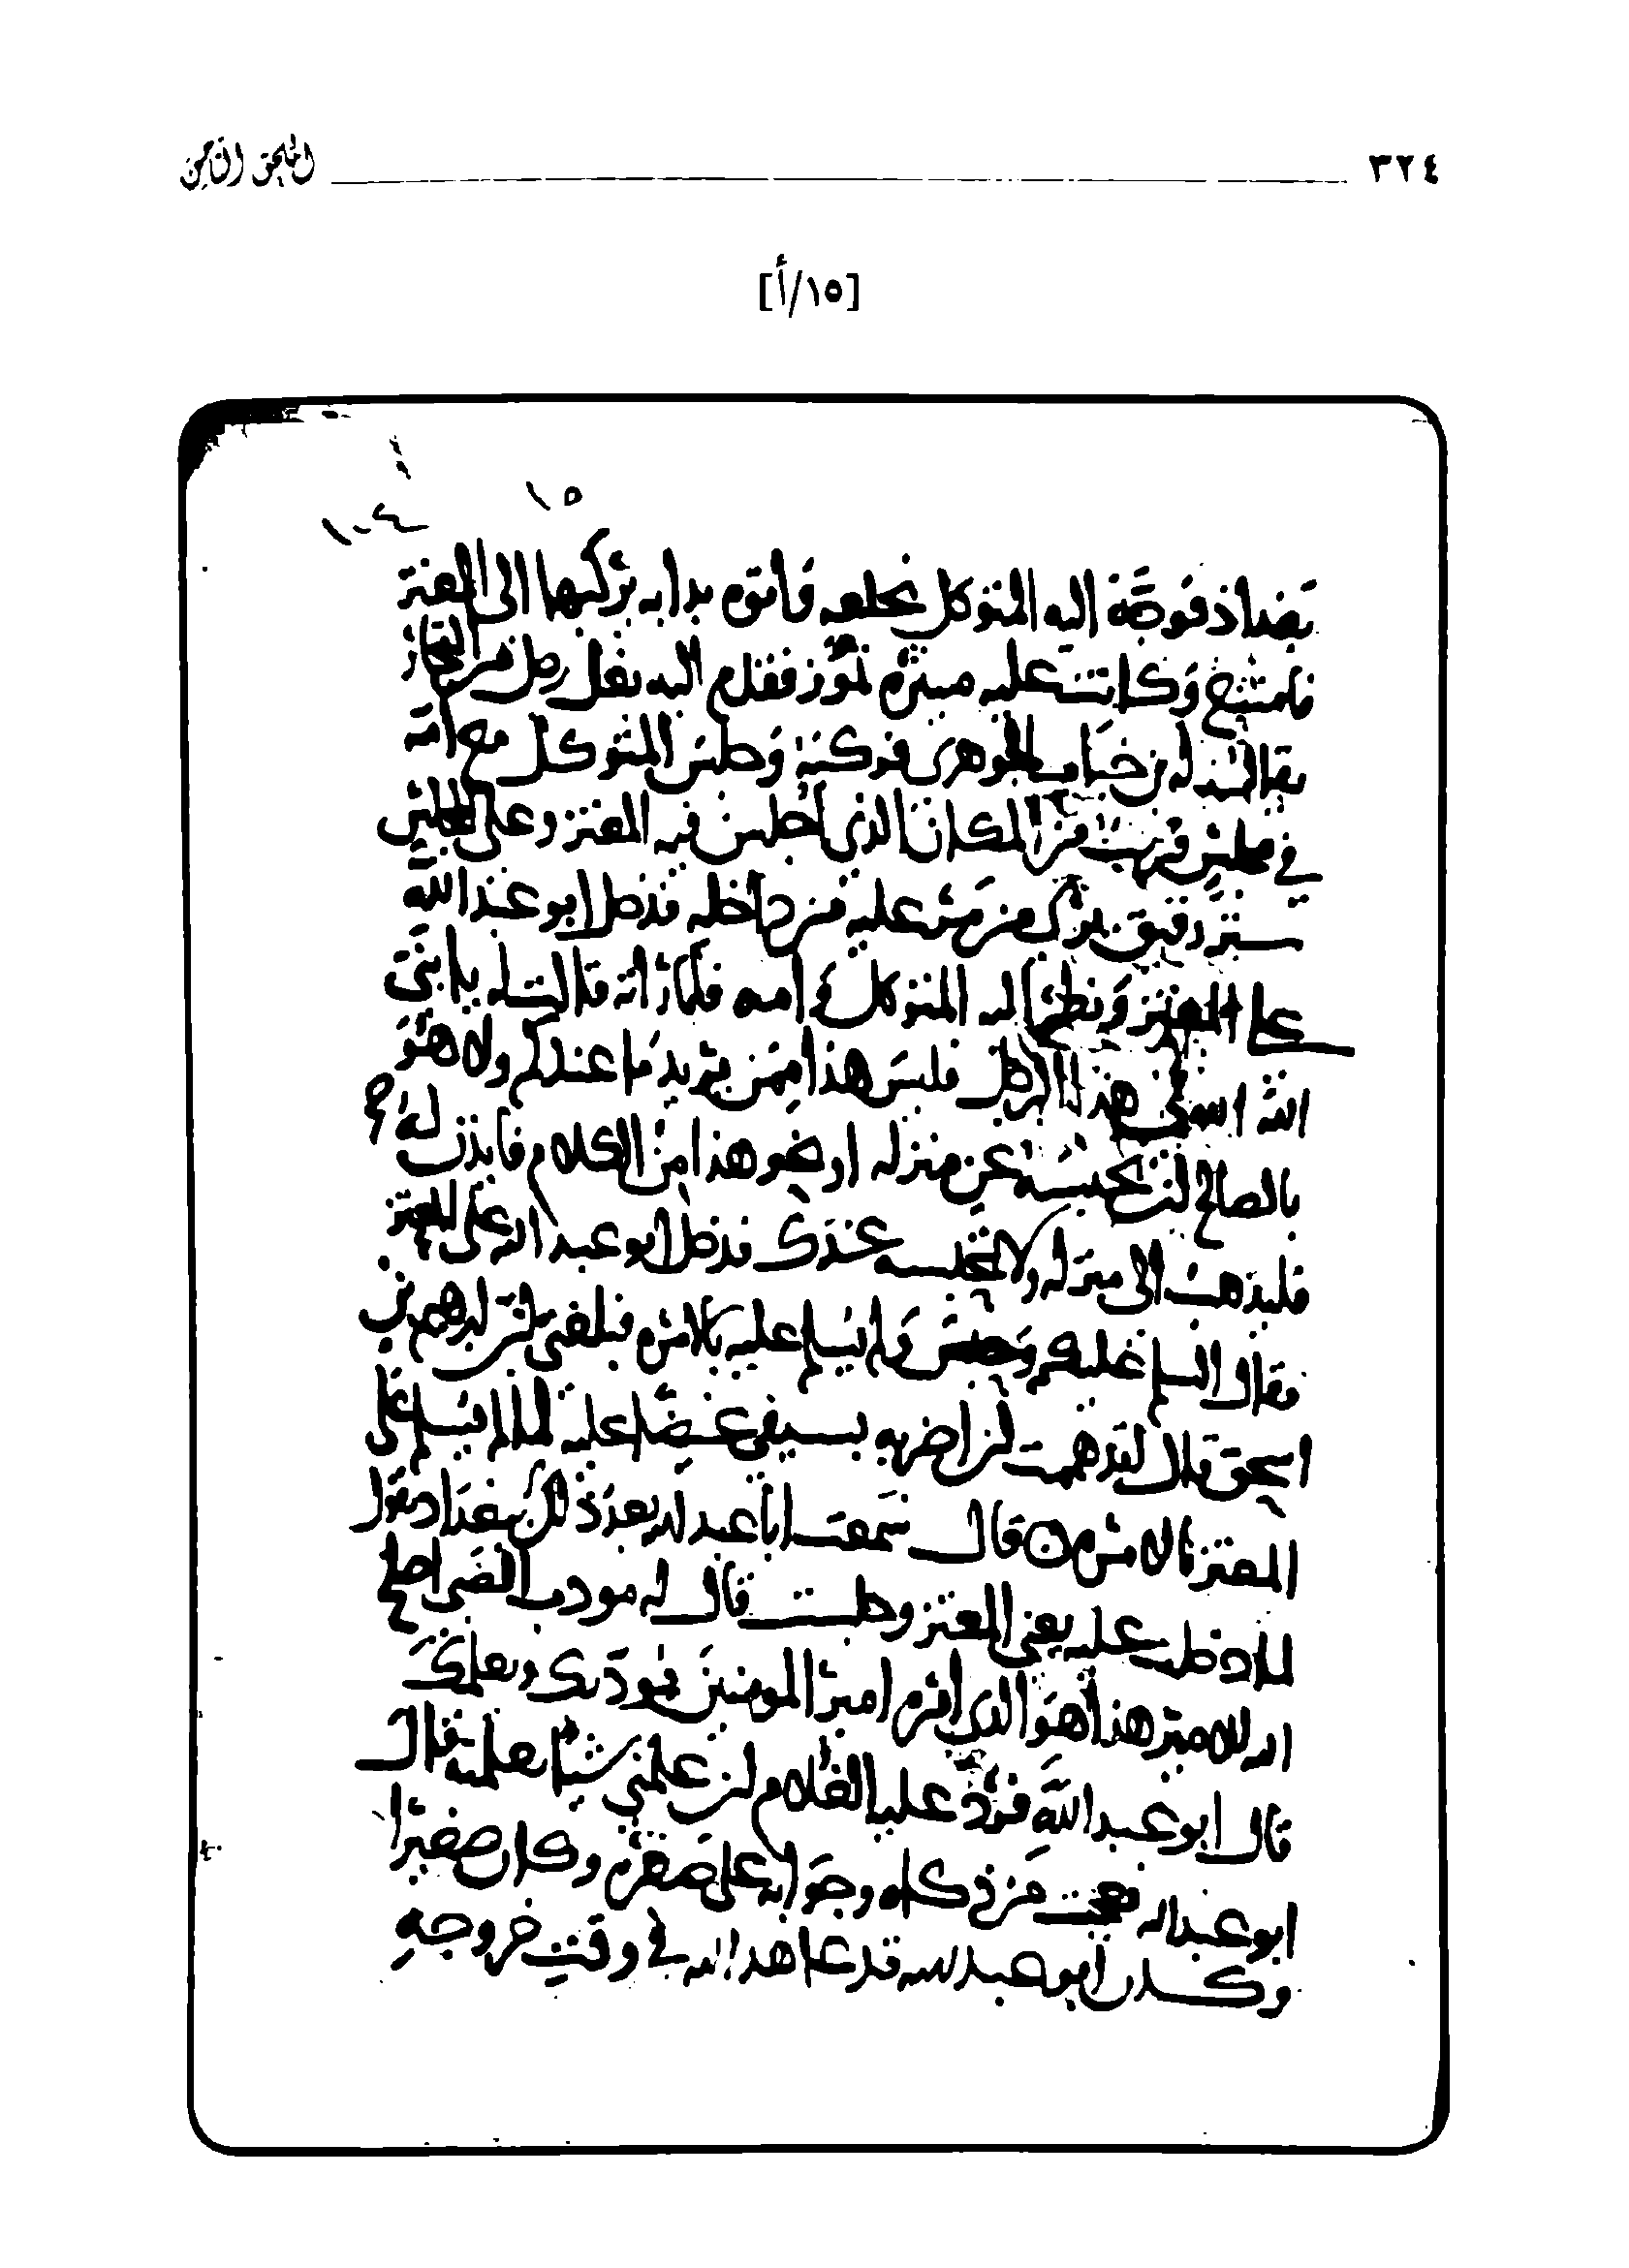 ٣٢٤ الملحق الثامن
[١٥/أ]
١٥
١٠٤
بغداذ فوجّه اليه المتوكل بخلعه وأتوه بدابه يركبها الى المعتز
فامتنع وكانت عليه ميثره نمور فقدم اليه بغل رجل من التجار
يقال له بن خباب الجوهرى فركبه وجلس المتوكل مع امه
في مجلس قريب من المكان الذي اجلس فيه المعتز وعلى المجلس
ستر رقيق يرى من مر عليه من داخله فدخل ابو عبد الله
على المعتز ونظر اليه المتوكل وامه فلما رأته قالت له يا بنى
الله الله في هذا الرجل فليس هذا ممن يريد ما عندكم ولا هو
بالصالح لئن تحبسه عن منزله او نحو هذا من الكلام فايذن له
فليذهب الى منزله ولا تحبسه عندك فدخل ابو عبد الله على المعتز
فقال السلم عليكم وجلس ولم يسلم عليه بالامره فبلغنى ان ابرهيم بن
اسحق قال لقد هممت ان اضربه بسيفى غضبا عليه لما لم يسلم على
المعتز بالامره قال سمعت ابا عبد الله بعد ذلك ببغداد يقول
لما دخلت عليه يعنى المعتز وجلست قال له مودب الصبى اصلح
الله الامير هذا هو الذي امره امير المومنين يودبك ويعلمك
قال ابو عبد الله فرد عليه الغلام ان علمني شيا تعلمته قال
ابو عبد الله فعجبت من ذكائه وجوابه على صغره وكان صغيرا
وكان ابو عبد الله قد عاهد الله في وقت خروجه